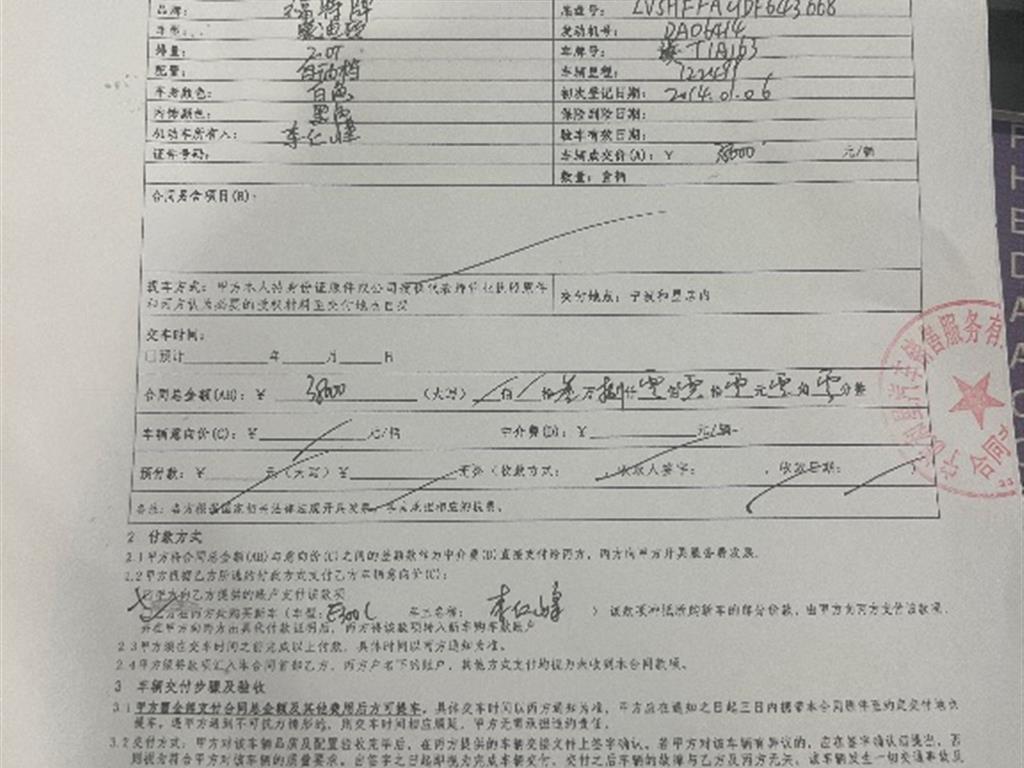 品牌： 福特牌 底盘号： LVSHFFAYDF643668
车型： 蒙迪欧 发动机号： DA06414
排量： 2.0T 车牌号： T1A163
配置： 自动档 车辆里程： 122499
车身颜色： 白色 初次登记日期： 2014.01.06
内饰颜色： 黑色 保险到期日期：
机动车所有人： 李仁峰 验车有效日期：
证件号码： 车辆成交价(A)：￥ 38000 元/辆
数量：壹辆
合同另含项目(B)：
提车方式：甲方本人持身份证原件或公司授权代表持
和丙方认为必要的授权材料至交付地点自提 交付地点：宁波和昌店内
交车时间：
□预计 年 月 日
合同总金额(AB)：￥ 38000 （大写） 佰 拾 叁 万 捌 仟 零 佰 零 拾 零 元 零 角 零 分整
车辆意向价(C)：￥ 元/辆 中介费(D)：￥ 元/辆
预付款：￥ 元（大写）￥ 元整（收款方式： 收款人签字： ，收款日期：
备注：各方根据国家相关法律法规开具发票，并承担相应的税费。
汽车销售服务有
合同
2 付款方式
2.1甲方将合同总金额(AB)与意向价(C)之间的差额款作为中介费(D)直接支付给丙方，丙方向甲方开具服务费发票。
2.2甲方根据乙方所选的付款方式支付乙方车辆意向价(C)：
甲方向乙方提供的账户支付该款项
乙方在丙方处购买新车（车型：E300L 车主名称： 李仁峰 ）该款项冲抵所购新车的部分价款，由甲方为丙方支付该款项，
并在甲方向丙方出具代付款证明后，丙方将该款项转入新车购车款账户
2.3甲方须在交车时间之前完成以上付款，具体时间以丙方通知为准。
2.4甲方须将款项汇入本合同首部乙方、丙方户名下的账户，其他方式支付均视为未收到本合同款项。
3 车辆交付步骤及验收
3.1甲方需全额支付合同总金额及其他费用后方可提车，具体交车时间以丙方通知为准，甲方应在通知之日起三日内携带本合同原件至约定交付地点
提车，遇甲方遇到不可抗力情形的，则交车时间相应顺延，甲方无需承担违约责任。
3.2交付方式：甲方对该车辆品质及配置验收完毕后，在丙方提供的车辆交接文件上签字确认。若甲方对该车辆有异议的，应在签字确认前提出，否
则视为符合甲方对该车辆的质量要求，自签字之日起即视为完成车辆交付，交付之后车辆的故障与乙方及丙方无关，该车辆发生一切交通事故及